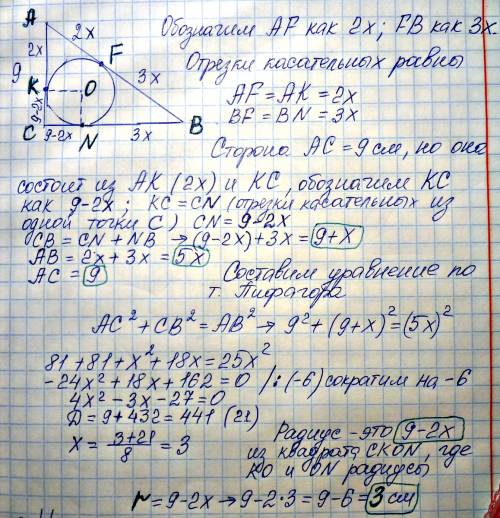 A
2x
2x
F
9
K
O
3x
9-2x
C
9-2x
N
3x
B
Обозначим AF как 2x; FB как 3x.
Отрезки касательных равны
AF = AK = 2x
BF = BN = 3x
Сторона AC = 9 см, но она
состоит из AK (2x) и KC, обозначим KC
как 9-2x; KC = CN (отрезки касательных из
одной точки C) CN = 9-2x
CB = CN + NB → (9-2x)+3x = 9+x
AB = 2x + 3x = 5x
AC = 9
Составим уравнение по
т. Пифагора
AC² + CB² = AB² → 9² + (9+x)² = (5x)²
81 + 81 + x² + 18x = 25x²
-24x² + 18x + 162 = 0 /:(-6) сократим на -6
4x² - 3x - 27 = 0
D = 9 + 432 = 441 (21)
x = (3+21)/8 = 3
Радиус - это 9-2x
из квадрата CKON, где
KO и ON радиусы
r = 9-2x → 9-2·3 = 9-6 = 3 см